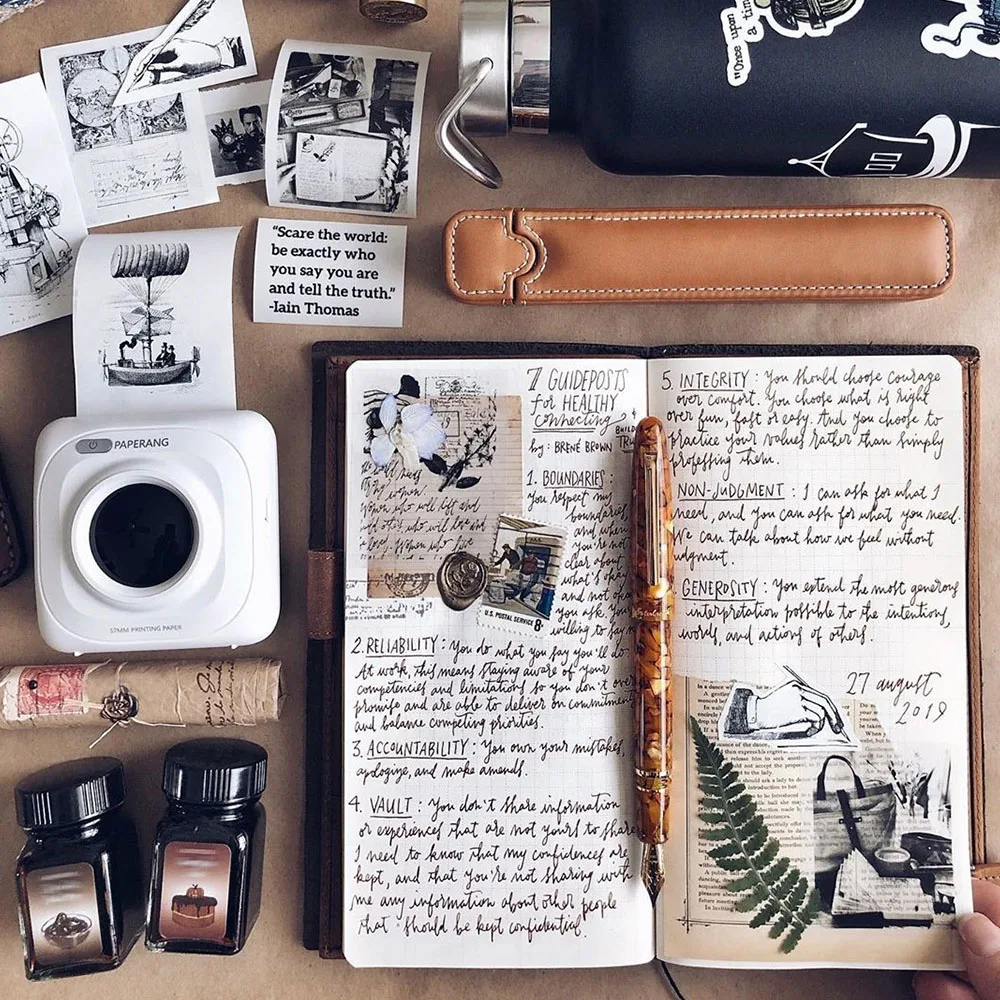 "Once upon
a time
"Scare the world:
be exactly who
you say you are
and tell the truth."
-Iain Thomas
PAPERANG
57MM PRINTING PAPER
7 GUIDEPOSTS
for HEALTHY
connecting
&
BUILD
TRU
by: BRENÉ BROWN
1. BOUNDARIES:
You respect my
boundaries,
and when
you're not
clear about
what's okay
and not oka
you ask. You
willing to say n
women
women who will lift and
U.S. POSTAL SERVICE 8¢
2. RELIABILITY: You do what you say you'll do.
At work, this means staying aware of your
competencies and limitations so you don't over
promise and are able to deliver on commitments
and balance competing priorities.
3. ACCOUNTABILITY: You own your mistakes,
apologize, and make amends.
4. VAULT: You don't share information
or experiences that are not yours to share
I need to know that my confidences are
kept, and that you're not sharing with
me any information about other people
that should be kept confidential.
5. INTEGRITY: You should choose courage
over comfort. You choose what is right
over fun, fast or easy. And you choose to
practice your values rather than simply
professing them.
NON-JUDGMENT: I can ask for what I
need, and you can ask for what you need.
We can talk about how we feel without
judgment.
GENEROSITY: You extend the most generous
interpretation possible to the intentions,
words, and actions of others.
27 august
2019